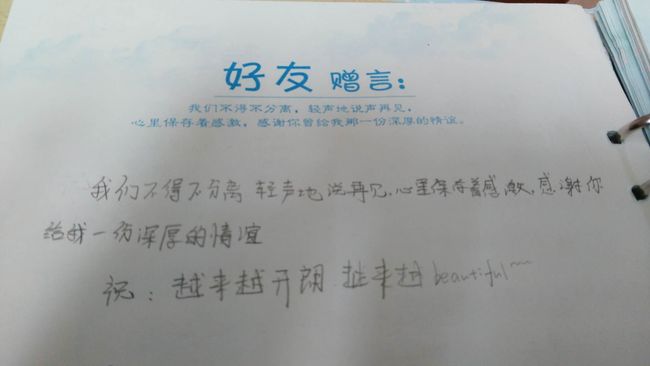 好友 赠言:
我们不得不分离,轻声地说声再见,
心里保存着感激,感谢你曾给我那一份深厚的情谊。
我们不得不分离 轻声地 说再见,心里保存着感激,感谢你
给我一份深厚的情谊
祝:越来越开朗 越来越beautiful~~